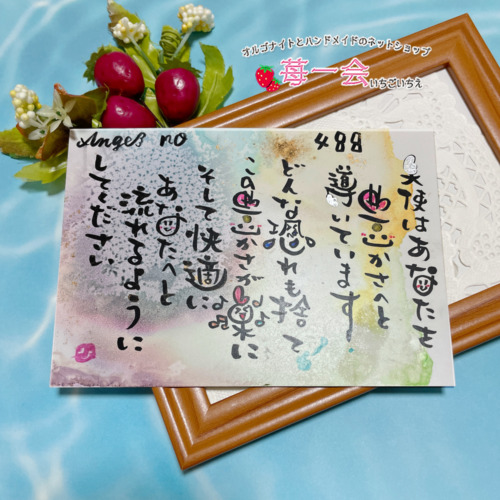 オルゴナイトとハンドメイドのネットショップ
苺一会
いちごいちえ
Angel no 488
天使はあなたを
豊かさへと
導いています!
どんな恐れも捨て
この豊かさが楽に
そして快適に
あなたへと
流れるように
してください